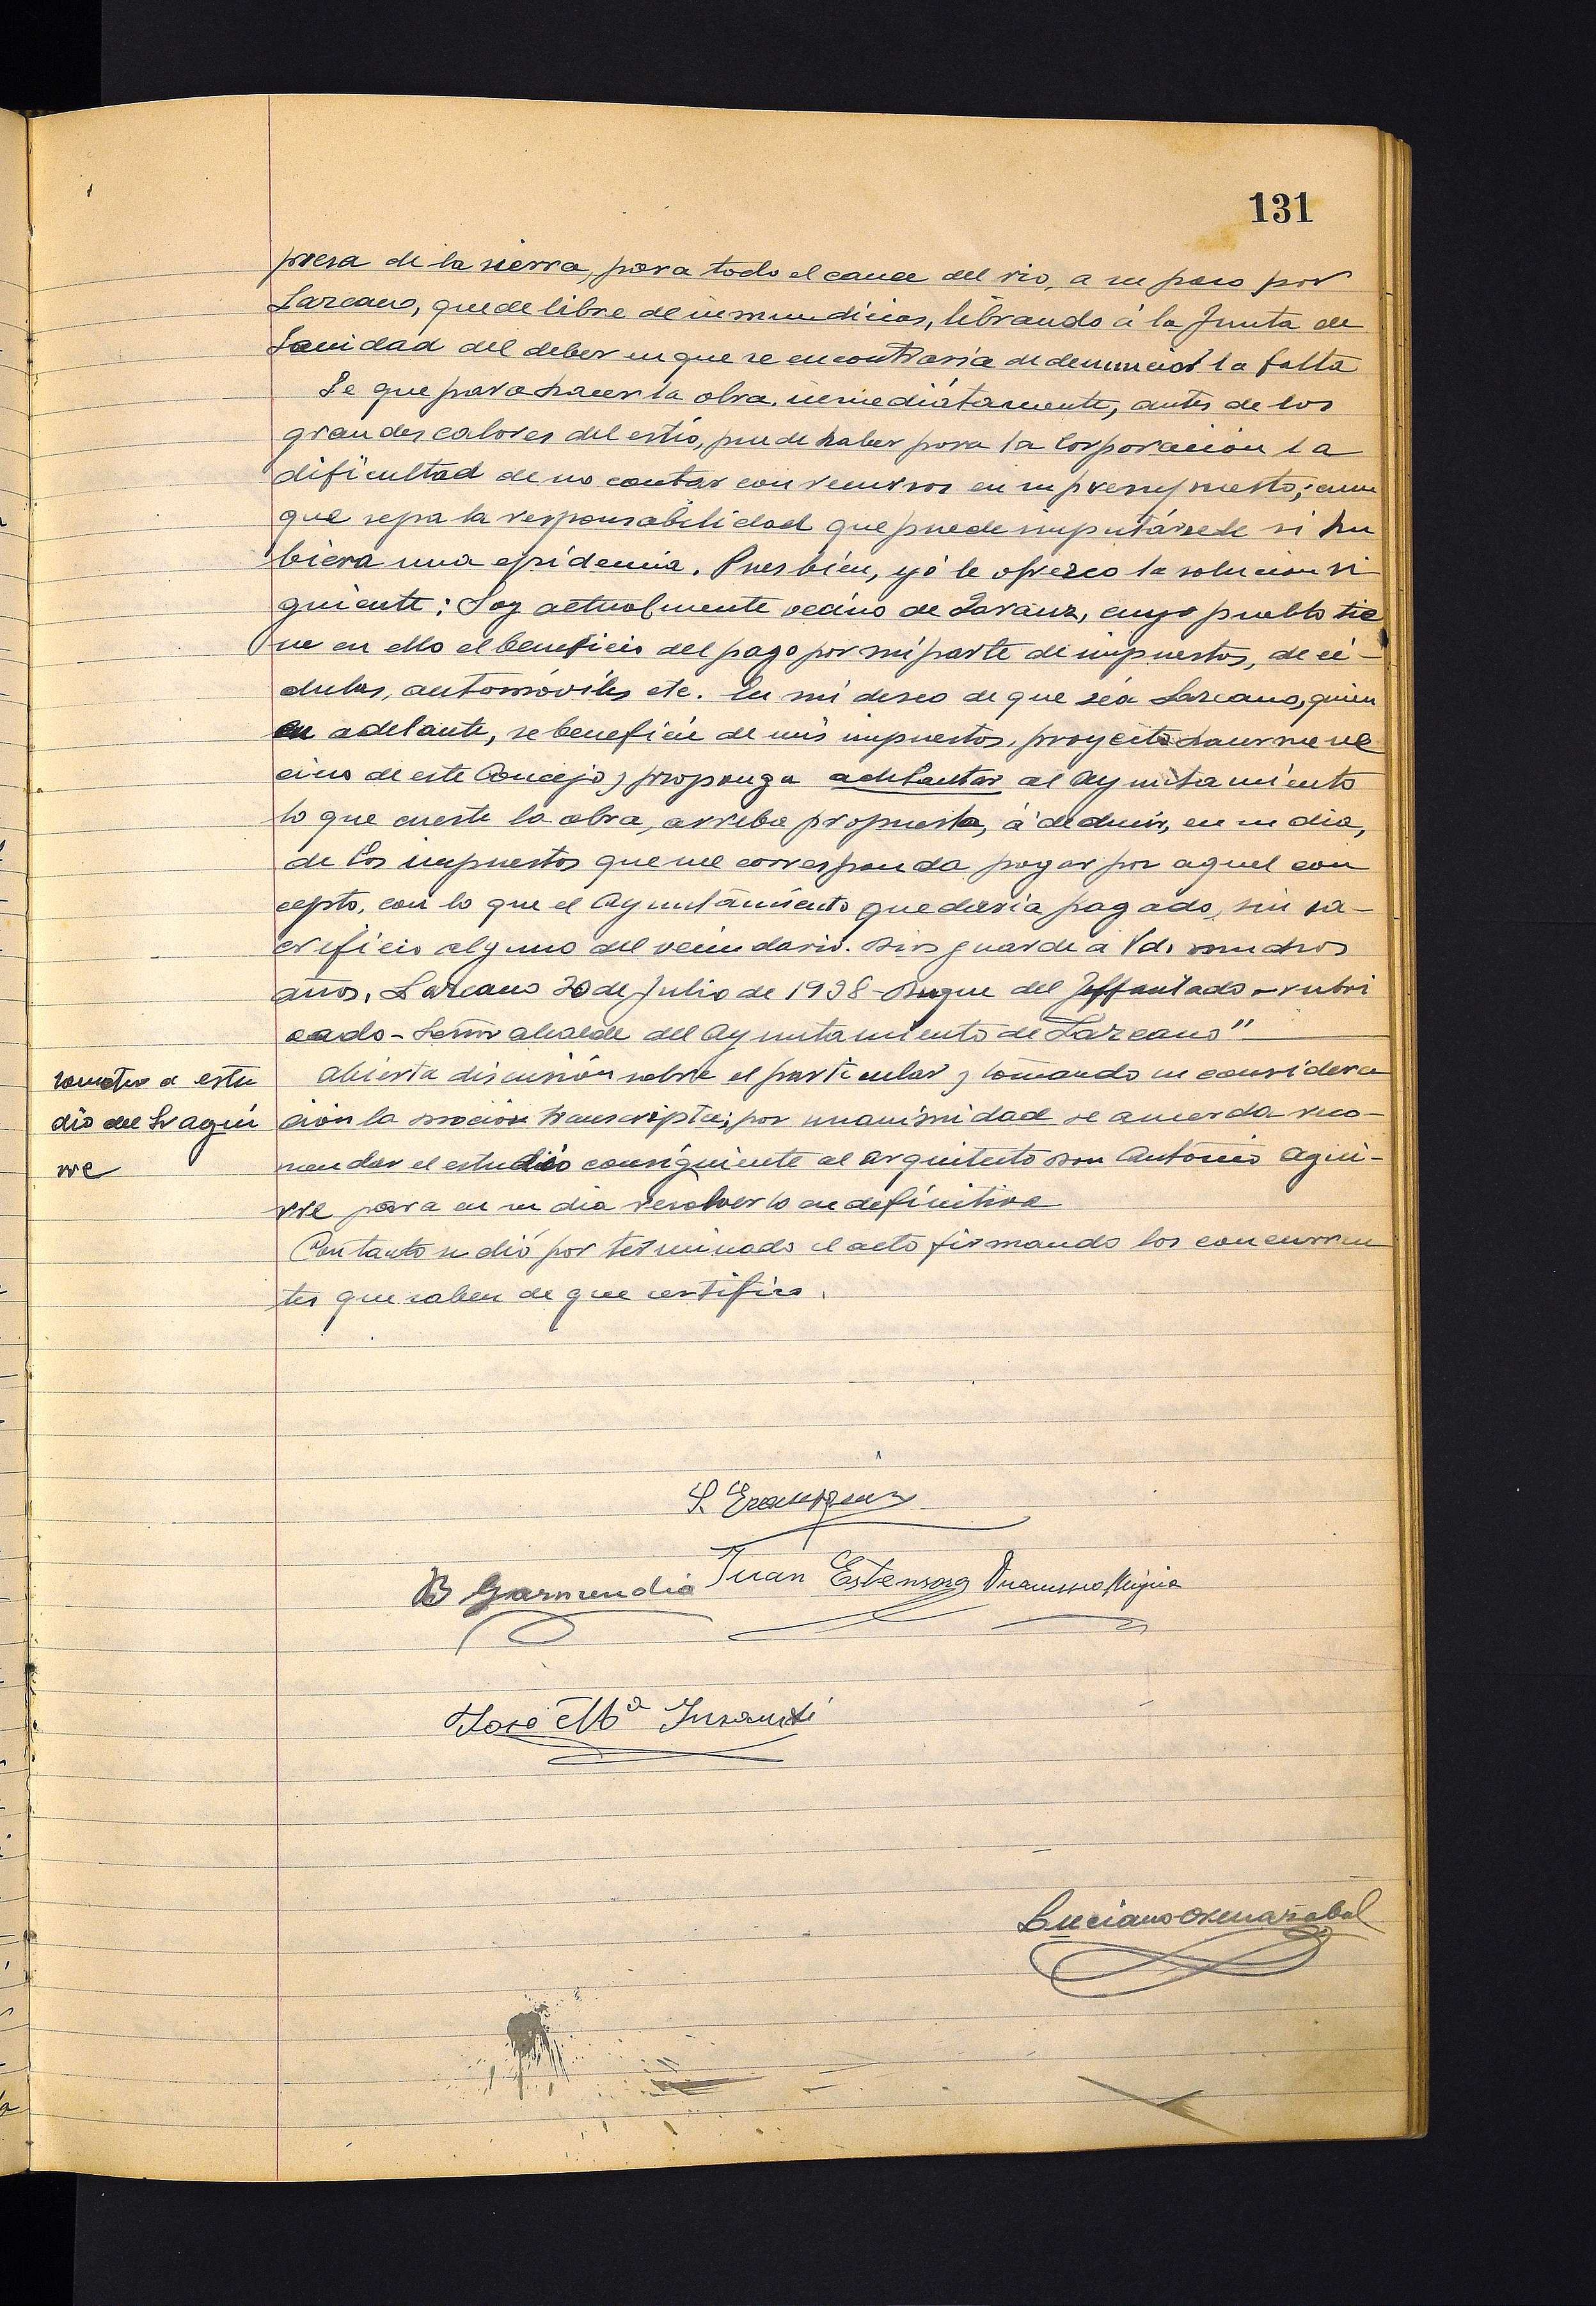 131
presa de la sierra, para todo el cauce del rio, a su paso por
Lazcano, quede libre de inmundicias, librando á la Junta de
Sanidad del deber en que se encontraria de denunciar la falta
Se que para hacer la obra, inmediátamente, antes de los
grandes calores del estio, puede haber para la Corporación la
dificultad de no contar con recursos en su presupuesto; aun
que sepa la responsabilidad que puede imputársele si hu
biera una epidemia. Pues bién, yó le ofrezco la solucion si
guiente: Soy actualmente vecino de Zarauz, cuyo pueblo tie
ne en ello el beneficio del pago por mi parte de impuestos, de cé-
dulas, automóviles etc. En mi deseo de que sea Lazcano, quien
en adelante, se beneficie de mis impuestos, proyecto hacerme ve
cino de este Concejo y propongo adelantar al Ayuntamiento
lo que cueste la obra, arriba propuesta, á deducir, en su dia,
de los impuestos que me corresponda pagar por aquel con
cepto, con lo que el Ayuntamiento quedaria pagado, sin sa-
crificio alguno del vecindario. Dios guarde a Vd. muchos
años, Lazcano 20 de Julio de 1938 - Duque del Ynfantado - rubri
cado - Señor alcalde del Ayuntamiento de Lazcano"
sometese a estu
dio del Sr Aguir
rre
Abierta discusión sobre el particular y tomando en considera
ción la moción transcripta; por unanimidad se acuerda reco-
mendar el estudio consiguiente al arquitecto don Antonio Agui-
rre para en su dia resolver lo en definitiva
Con tanto se dió por terminado el acto firmando los concurren
tes que saben de que certifico.
B Garmendia
Juan Estensoro
José Mª Insausti
Luciano Ormazabal